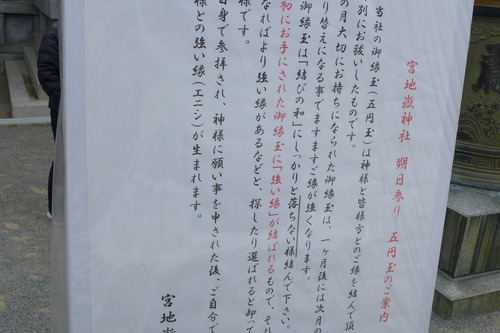 宮地嶽神社 朔日参り 五円玉のご案内
当社の御縁玉(五円玉)は神様と皆様方とのご縁を結んで頂
別にお祓いしたものです。
の月大切にお持ちになられた御縁玉は、一ヶ月後には次月の
り替えになる事でますますご縁が強くなります。
御縁玉は「結びの和」にしっかりと落ちない様結んで下さい。
初にお手にされた御縁玉に「強い縁」が結ばれるもので、それ
なればより強い縁があるなどと、探したり選ばれると却って
様です。
自身で参拝され、神様に願い事を申された後、ご自分で
様との強い縁(エニシ)が生まれます。
宮地嶽